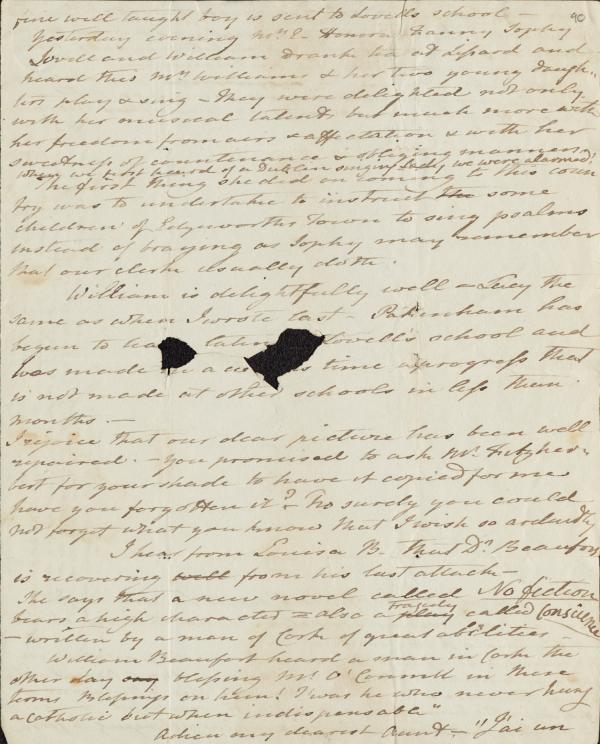 90
fine well taught boy is sent to Lovell's school —
Yesterday evening Mrs E Honora Fanny Sophy
Lovell and William drank tea at Lepard and
heard this Mrs Williams & her two young daugh-
ters play & sing — They were delighted not only
with her musical talents but much more with
her freedom from airs & affectation & with her
sweetness of countenance & obliging manners.
When we first heard of a Dublin singing Lady we were alarmed!
The first thing she did on coming to this coun
try was to undertake to instruct the some
children of Edgeworths Town to sing psalms
instead of braying as Sophy may remember
that our clerk usually doth.
William is delightfully well — Lucy the
same as when I wrote last — Pakenham has
begun to Lovell's school and
has made time a progress that
is not made at other schools in less than
months. —
I rejoice that our dear picture has been well
repaired. — You promised to ask Mr.
for your shade to have it copied for me
have you forgotten it? — No surely you could
not forget what you know that I wish so ardently
I hear from Louisa B. that Dr. Beaufort
is recovering well from his last attack —
She says that a new novel called No fiction
bears a high character — also a play Tragedy called Conscience
— written by a man of Cork of great abilities —
William Beaufort heard a man in Cork the
other day say blessing Mr O'Connell in these
terms Blessings on him! T'was he who never hung
a catholic but when indispensable"
Adieu my dearest Aunt — "J'ai un